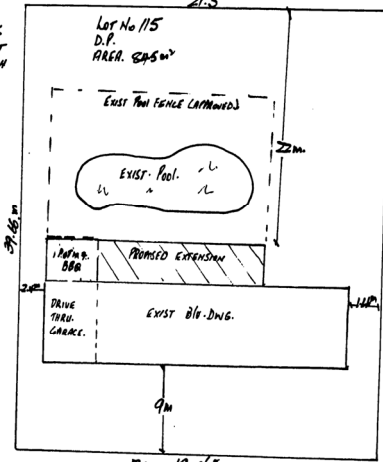 21.3
LOT NO 115
D.P.
AREA. 845m²
EXIST POOL FENCE (APPROVED)
22m.
EXIST. POOL.
39.66.m
BBQ
PROPOSED EXTENSION
DRIVE
THRU.
GARAGE.
EXIST B/V. DWG.
9M